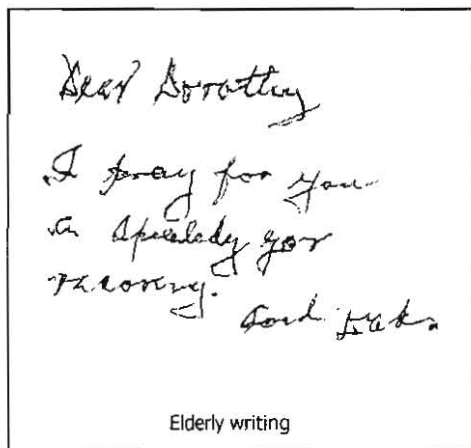 Dear Dorothy
I pray for you
a
recovery.
Good
Elderly writing